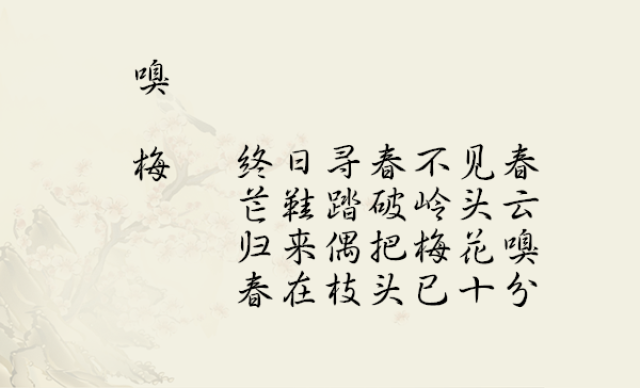 嗅梅
终日寻春不见春
芒鞋踏破岭头云
归来偶把梅花嗅
春在枝头已十分